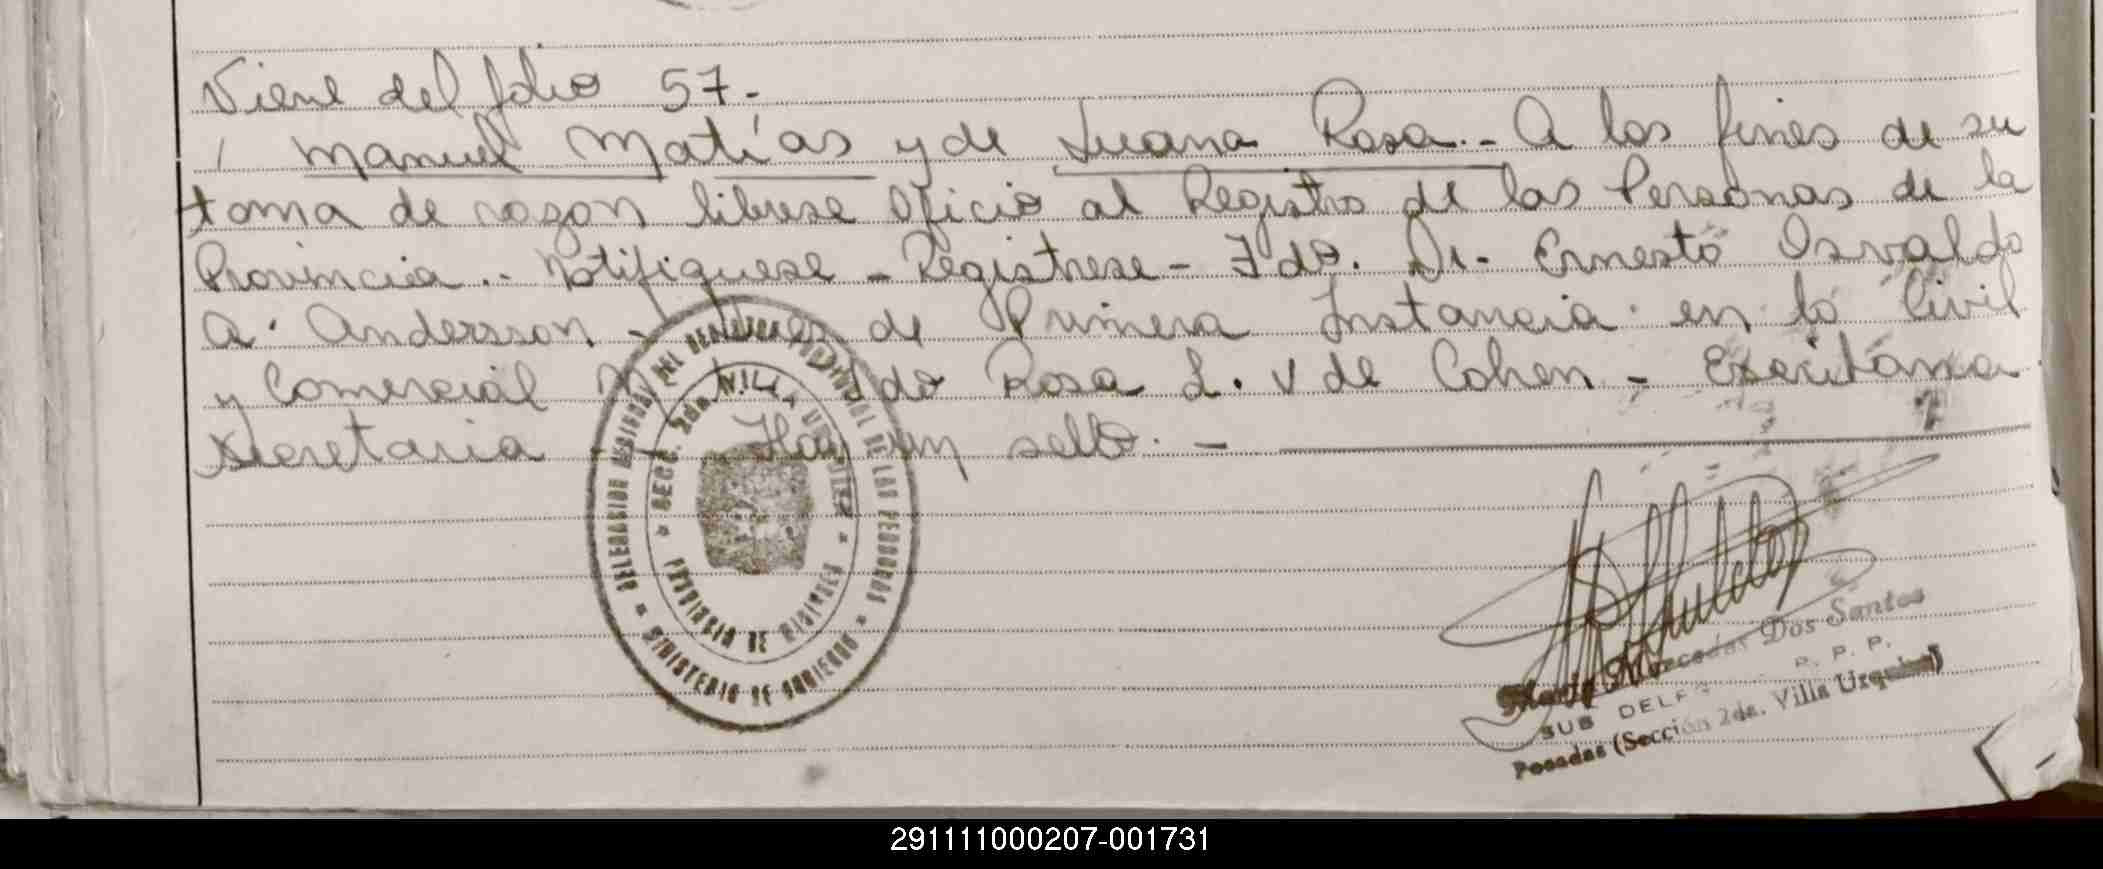 Viene del folio 57.-
Manuel Matías y de Juana Rosa.- A los fines de su
toma de razon librese oficio al Registro de las Personas de la
Provincia.- Notifiquese - Registrese - Fdo. Dr. Ernesto Osvaldo
A. Andersson - Juez de Primera Instancia en lo Civil
y Comercial Fdo Rosa L. V de Cohen - Escribana
Secretaria - Hay un sello. -
DELEGACION REGIONAL DEL REGISTRO PROVINCIAL DE LAS PERSONAS
* MINISTERIO DE GOBIERNO *
* SECC. 2da. VILLA URQUIZA *
PROVINCIA DE MISIONES
María Mercedes Dos Santos
SUB DELEG R. P. P.
Posadas (Sección 2da. Villa Urquiza)
291111000207-001731